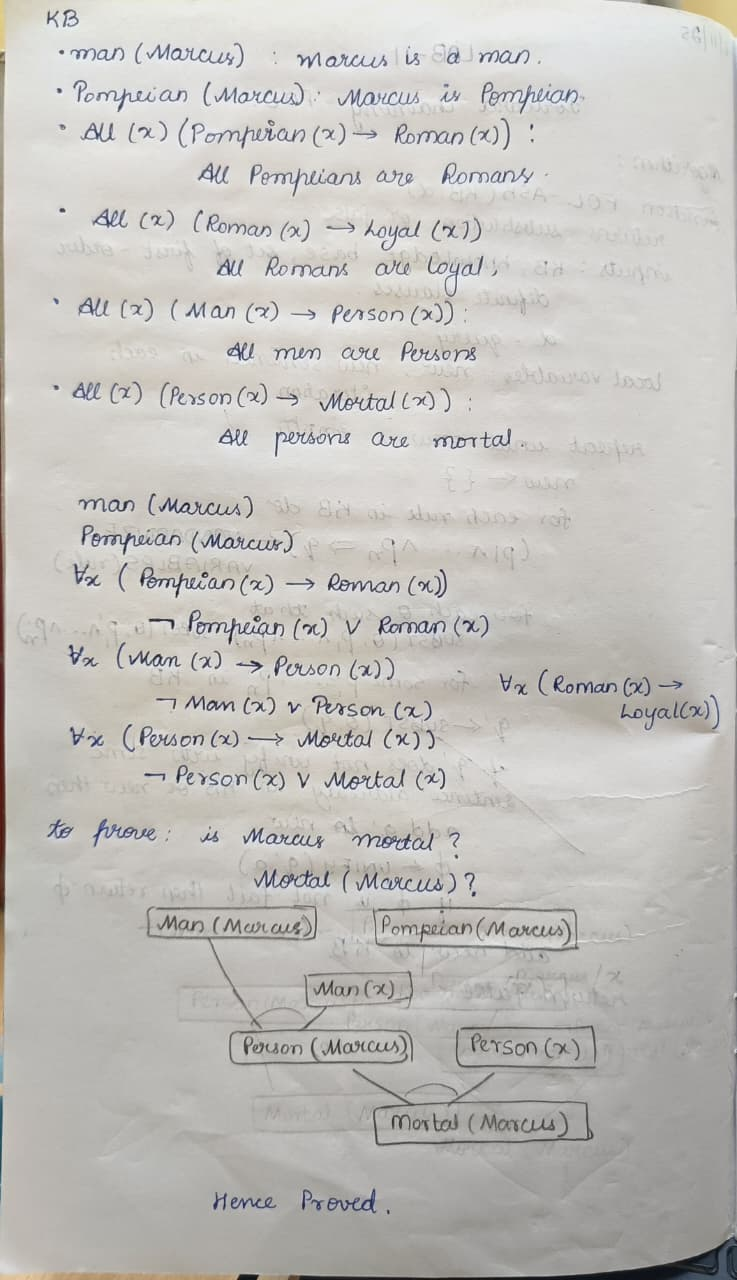 KB
• man (Marcus) : marcus is a man.
• Pompeian (Marcus) : Marcus is Pompeian.
• All (x) (Pompeian (x) → Roman (x)) :
All Pompeians are Romans.
• All (x) (Roman (x) → Loyal (x))
All Romans are Loyal,
• All (x) (Man (x) → Person (x)) :
All men are Persons
• All (x) (Person (x) → Mortal (x)) :
All persons are mortal.
man (Marcus)
Pompeian (Marcus)
∀x (Pompeian (x) → Roman (x))
¬ Pompeian (x) ∨ Roman (x)
∀x (Man (x) → Person (x))
∀x (Roman (x) →
Loyal (x))
¬ Man (x) ∨ Person (x)
∀x (Person (x) → Mortal (x))
¬ Person (x) ∨ Mortal (x)
to prove : is Marcus mortal ?
Mortal (Marcus) ?
Man (Marcus) Pompeian (Marcus)
Man (x)
Person (Marcus) Person (x)
Mortal (Marcus)
Hence Proved.